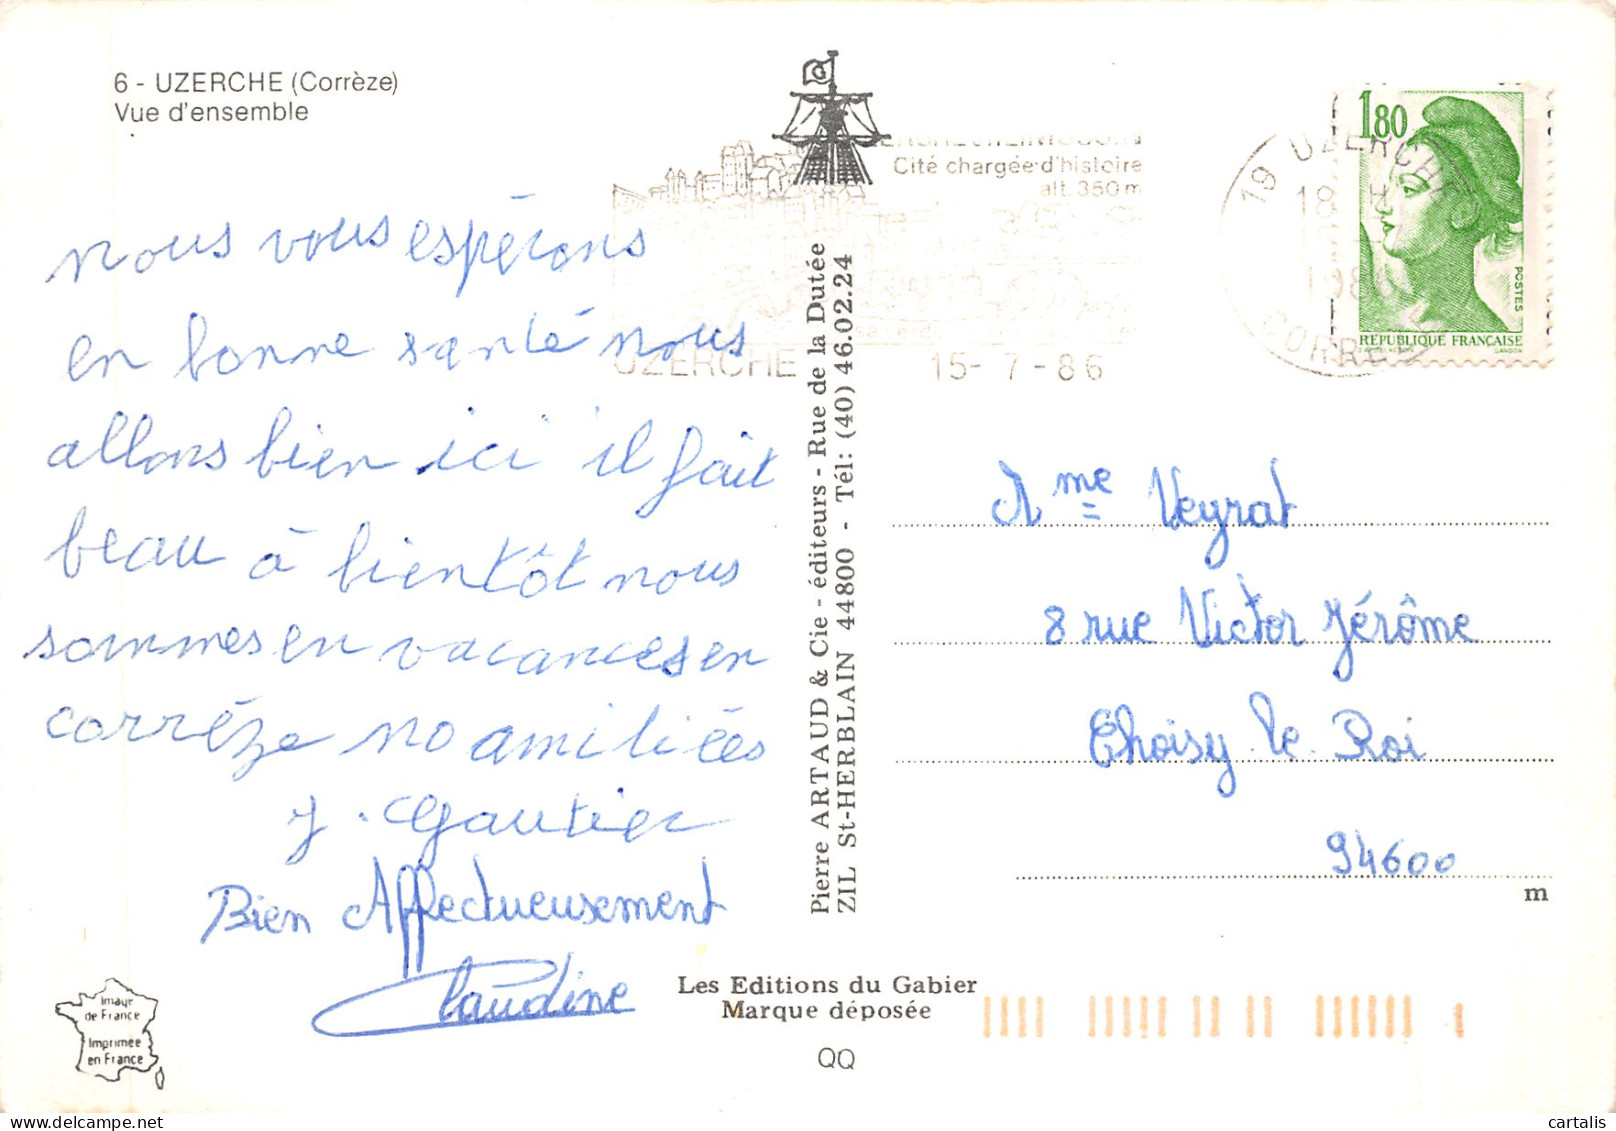 6 - UZERCHE (Corrèze)
Vue d'ensemble
Cité chargée d'histoire
alt. 350 m
UZERCHE 15- 7 -86
19 UZERCHE
18 H
1986
CORREZE
1,80
POSTES
REPUBLIQUE FRANCAISE
GANDON
nous vous espérons
en bonne santé nous
allons bien ici il fait
beau à bientôt nous
sommes en vacances en
corrèze no amitiées
J. Gautier
Bien Affectueusement
Claudine
Pierre ARTAUD & Cie - éditeurs - Rue de la Dutée
ZIL St-HERBLAIN 44800 - Tél: (40) 46.02.24
Mme Veyrat
8 rue Victor Jérôme
Choisy le Roi
94600
m
Image
de France
Imprimée
en France
Les Editions du Gabier
Marque déposée
QQ
cartalis
www.delcampe.net